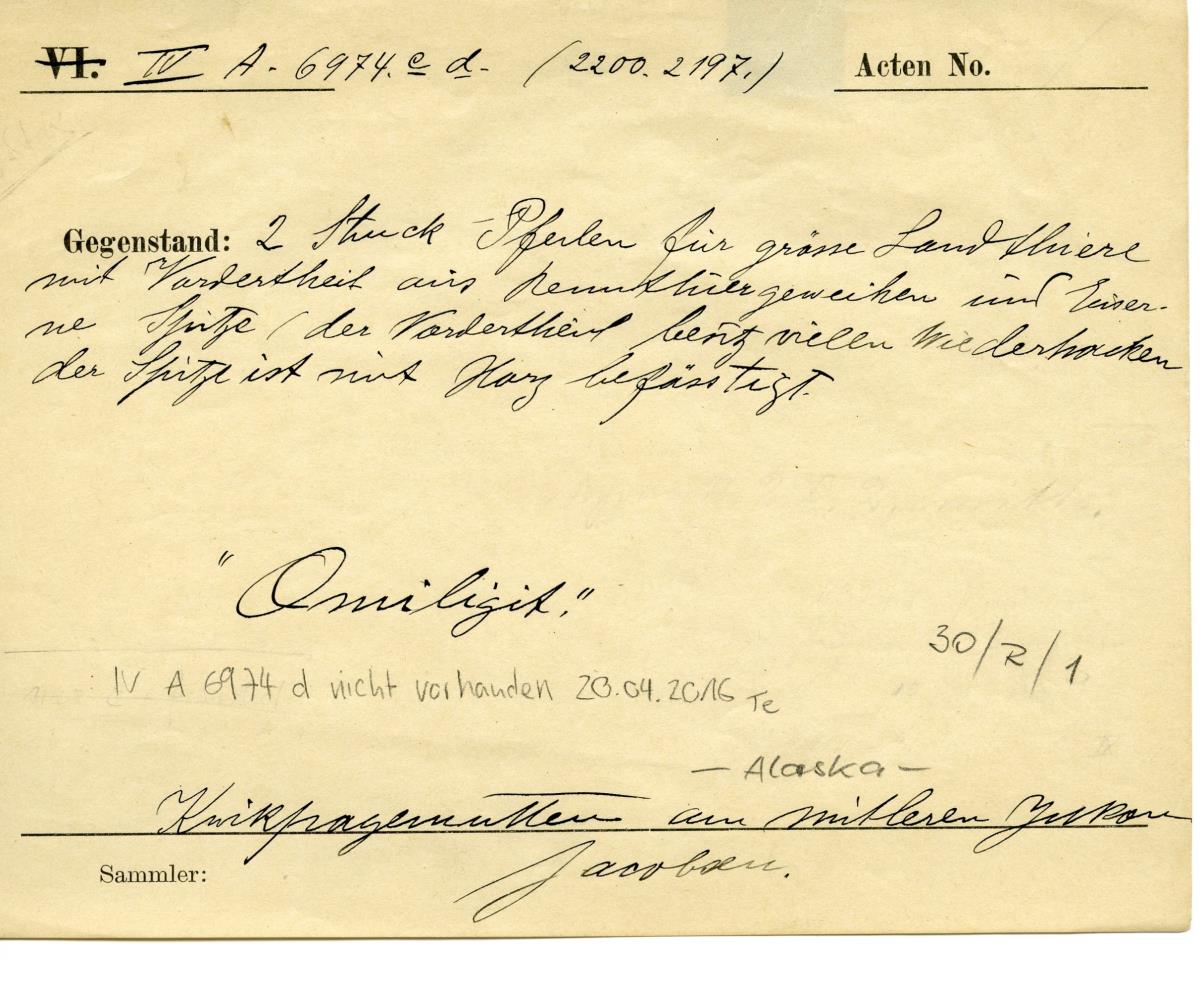 VI. IV A. 6974. c d. (2200. 2197.) Acten No.
Gegenstand: 2 Stuck Pfeilen für grösse Landthiere
mit Vordertheil aus Rennthiergeweihen und Eiser-
ne Spitze (der Vordertheil besitz viellen Wiederhacken
der Spitze ist mit Harz befässtigt.
"Omiligit."
30/R/1
IV A 6974 d nicht vorhanden 20.04.2016 Te
- Alaska -
Kwikpagemutten am mittleren Yukon
Sammler: Jacobsen.